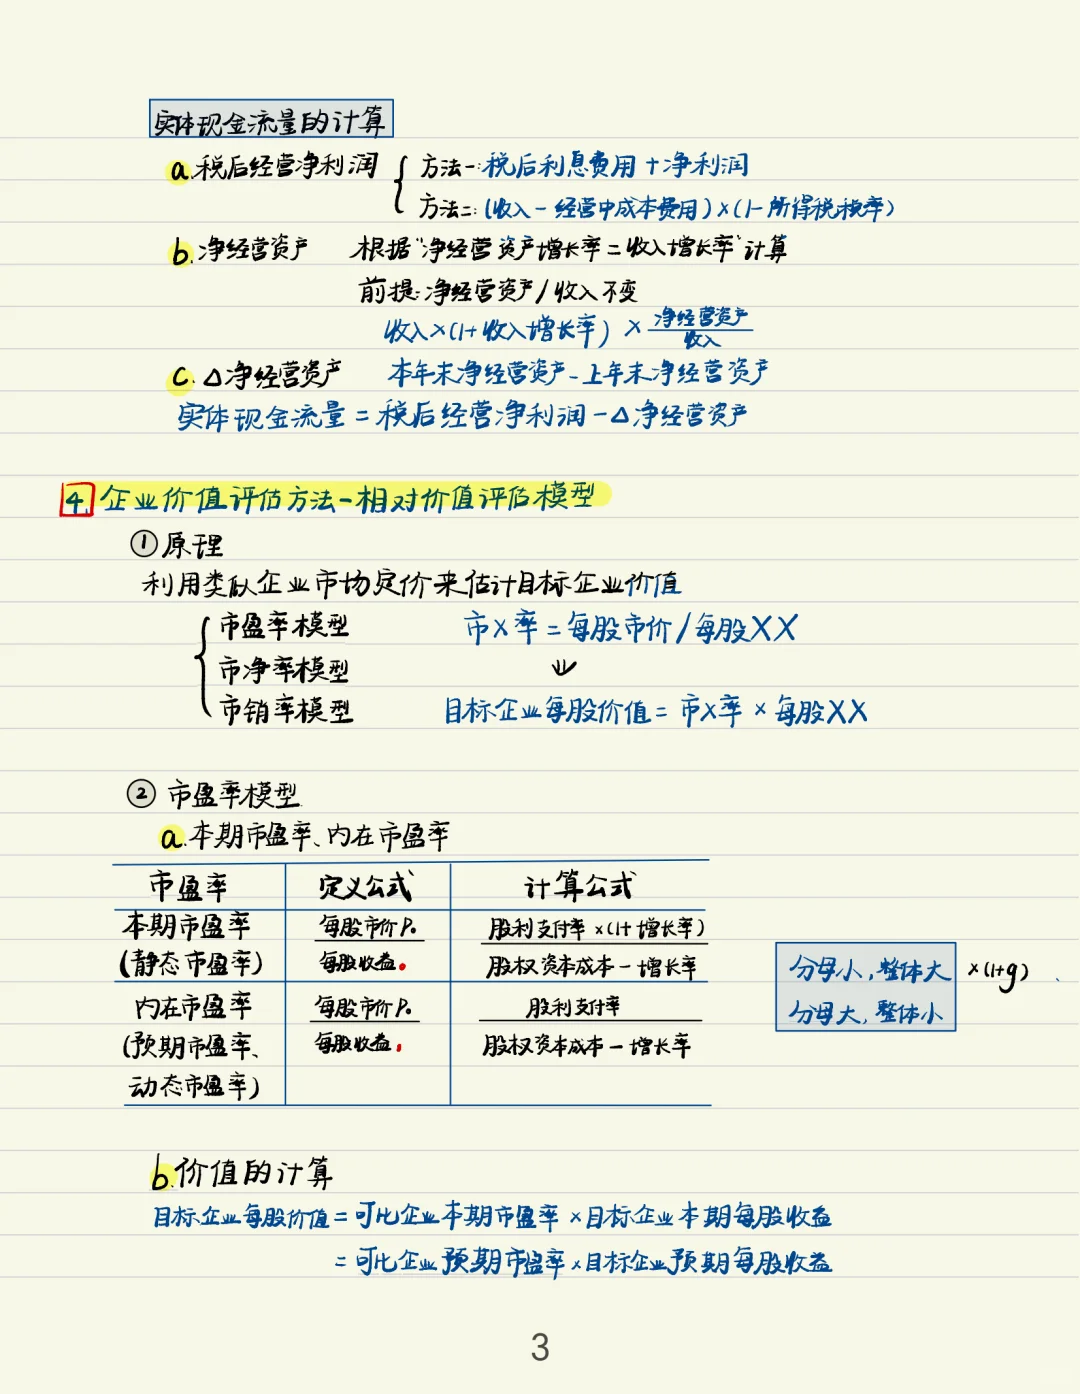 实体现金流量的计算
a.税后经营净利润 方法一:税后利息费用+净利润
方法二:(收入-经营中成本费用)×(1-所得税税率)
b.净经营资产 根据"净经营资产增长率=收入增长率"计算
前提:净经营资产/收入不变
收入×(1+收入增长率)×净经营资产/收入
c.△净经营资产 本年末净经营资产-上年末净经营资产
实体现金流量=税后经营净利润-△净经营资产
4.企业价值评估方法-相对价值评估模型
①原理
利用类似企业市场定价来估计目标企业价值
市盈率模型 市X率=每股市价/每股XX
市净率模型 ↓
市销率模型 目标企业每股价值=市X率×每股XX
②市盈率模型
a.本期市盈率、内在市盈率
市盈率 定义公式 计算公式
本期市盈率 每股市价P₀ 股利支付率×(1+增长率)
(静态市盈率) 每股收益₀ 股权资本成本-增长率
分母小,整体大 ×(1+g)
分母大,整体小
内在市盈率 每股市价P₀ 股利支付率
(预期市盈率、 每股收益₁ 股权资本成本-增长率
动态市盈率)
b.价值的计算
目标企业每股价值=可比企业本期市盈率×目标企业本期每股收益
=可比企业预期市盈率×目标企业预期每股收益
3